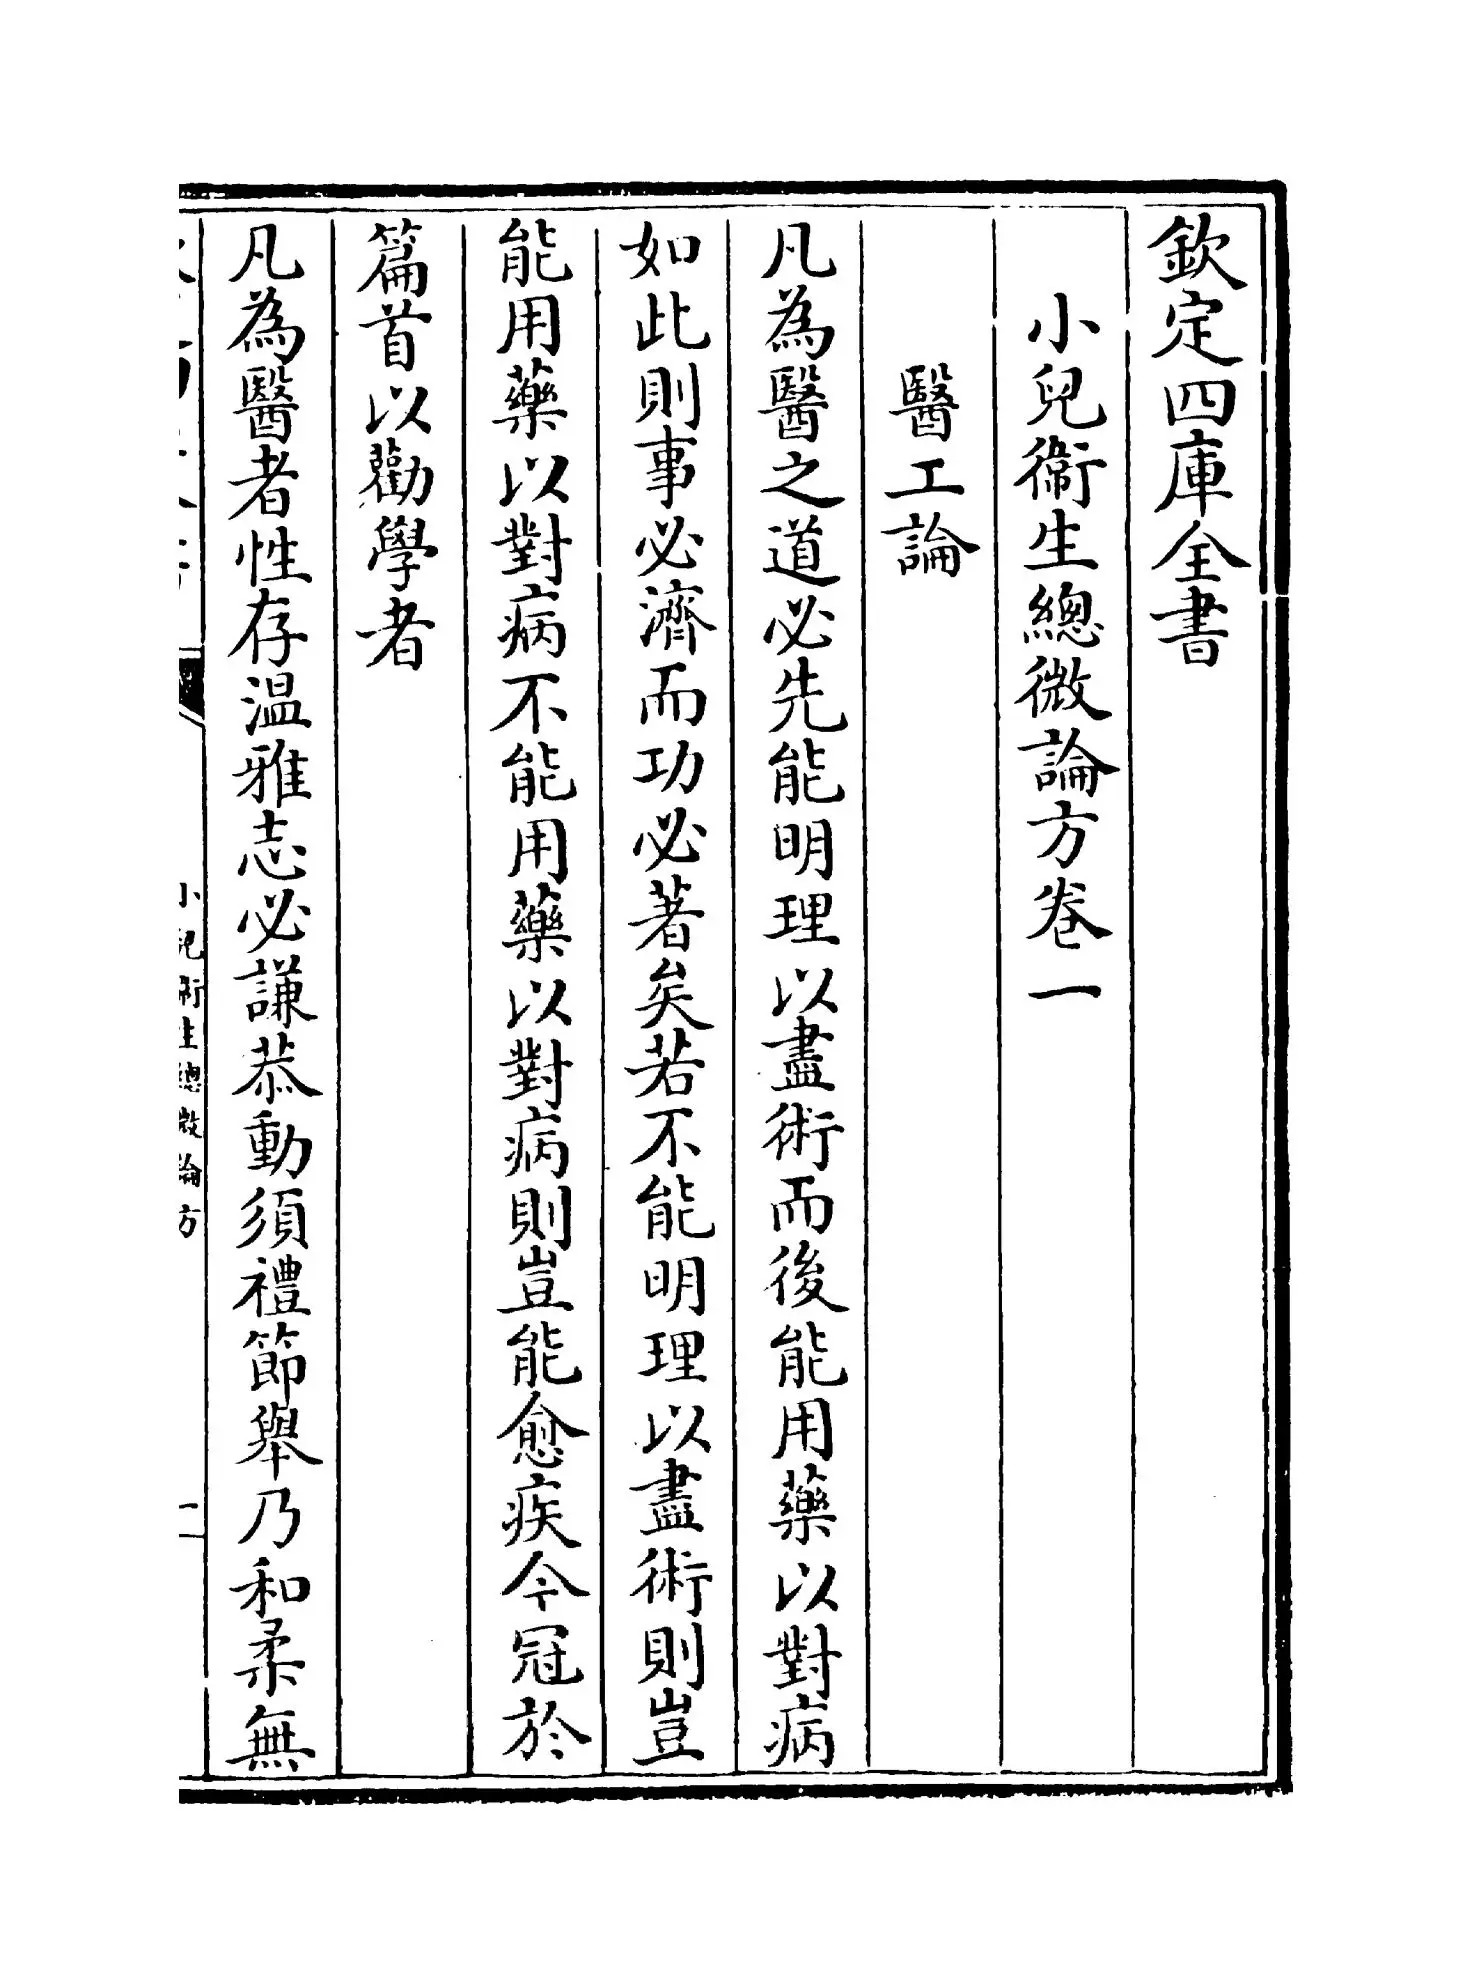 欽定四庫全書
小兒衛生總微論方卷一
醫工論
凡為醫之道必先能明理以盡術而後能用藥以對病
如此則事必濟而功必著矣若不能明理以盡術則豈
能用藥以對病不能用藥以對病則豈能愈疾今冠於
篇首以勸學者
凡為醫者性存溫雅志必謙恭動須禮節舉乃和柔無
小兒衛生總微論方
一